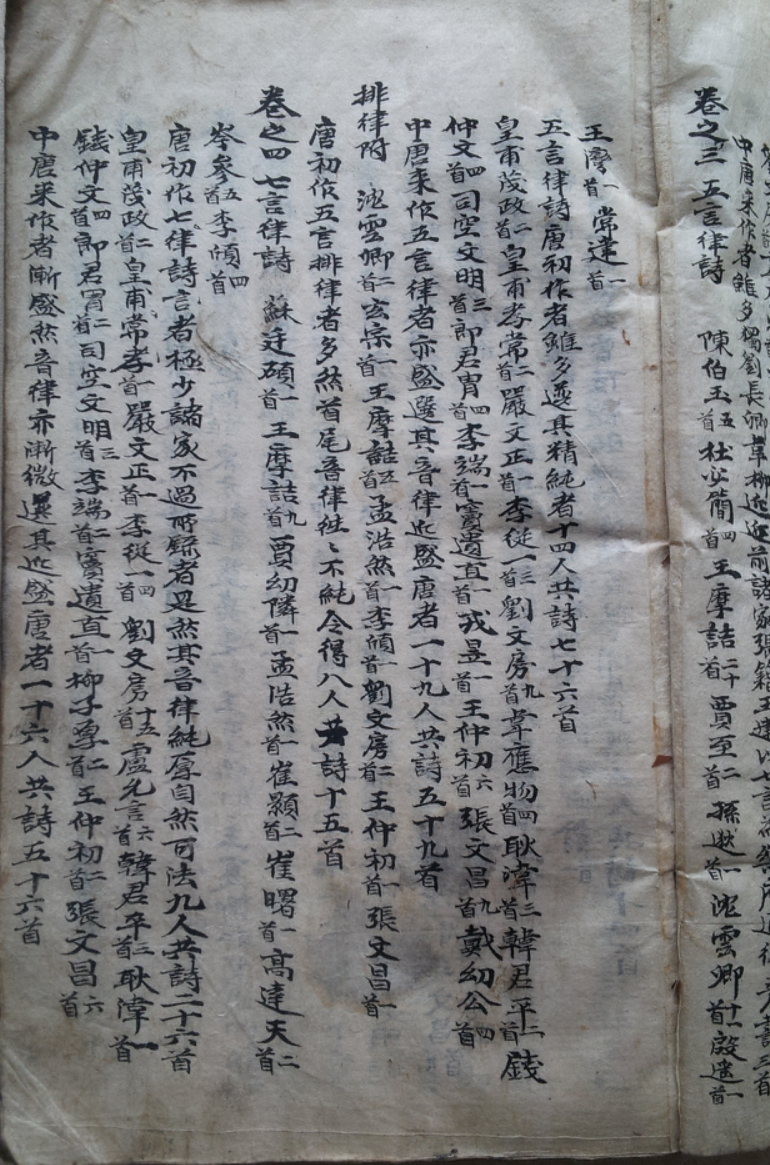 中唐来作者雖多獨劉長卿韋柳近前諸家張籍王建以七言
卷之三 五言律詩 陳伯玉五首 杜必簡四首 王摩詰二十首 賈至二首 孫逖一首 沈雲卿十一首 殷遥一首
王灣一首 常建一首
五言律詩唐初作者雖多選其精純者十四人共詩七十六首
皇甫茂政二首 皇甫孝常二首 嚴文正一首 李從一三首 劉文房九首 韋應物四首 耿湋三首 韓君平二首 錢
仲文四首 司空文明三首 郎君胄四首 李端一首 竇遺直一首 戎昱一首 王仲初六首 張文昌九首 戴幼公四首
中唐来作五言律者亦盛選其音律近盛唐者一十九人共詩五十九首
排律附 沈雲卿二首 玄宗一首 王摩詰五首 孟浩然一首 李頎一首 劉文房二首 王仲初一首 張文昌一首
唐初作五言排律者多然首尾音律往〻不純今得八人共詩十五首
卷之四 七言律詩 蘇廷碩一首 王摩詰九首 賈幼隣一首 孟浩然一首 崔顥二首 崔曙一首 高達夫二首
岑參五首 李頎四首
唐初作七律詩言者極少諸家不過所録者是然其音律純厚自然可法九人共詩二十六首
皇甫茂政二首 皇甫常孝一首 嚴文正一首 李從一四首 劉文房十五首 盧允言六首 韓君平三首 耿湋一首
錢仲文四首 郎君胃二首 司空文明三首 李端二首 竇遺直一首 柳子厚二首 王仲初二首 張文昌六首
中唐来作者漸盛然音律亦漸微選其近盛唐者一十六人共詩五十六首